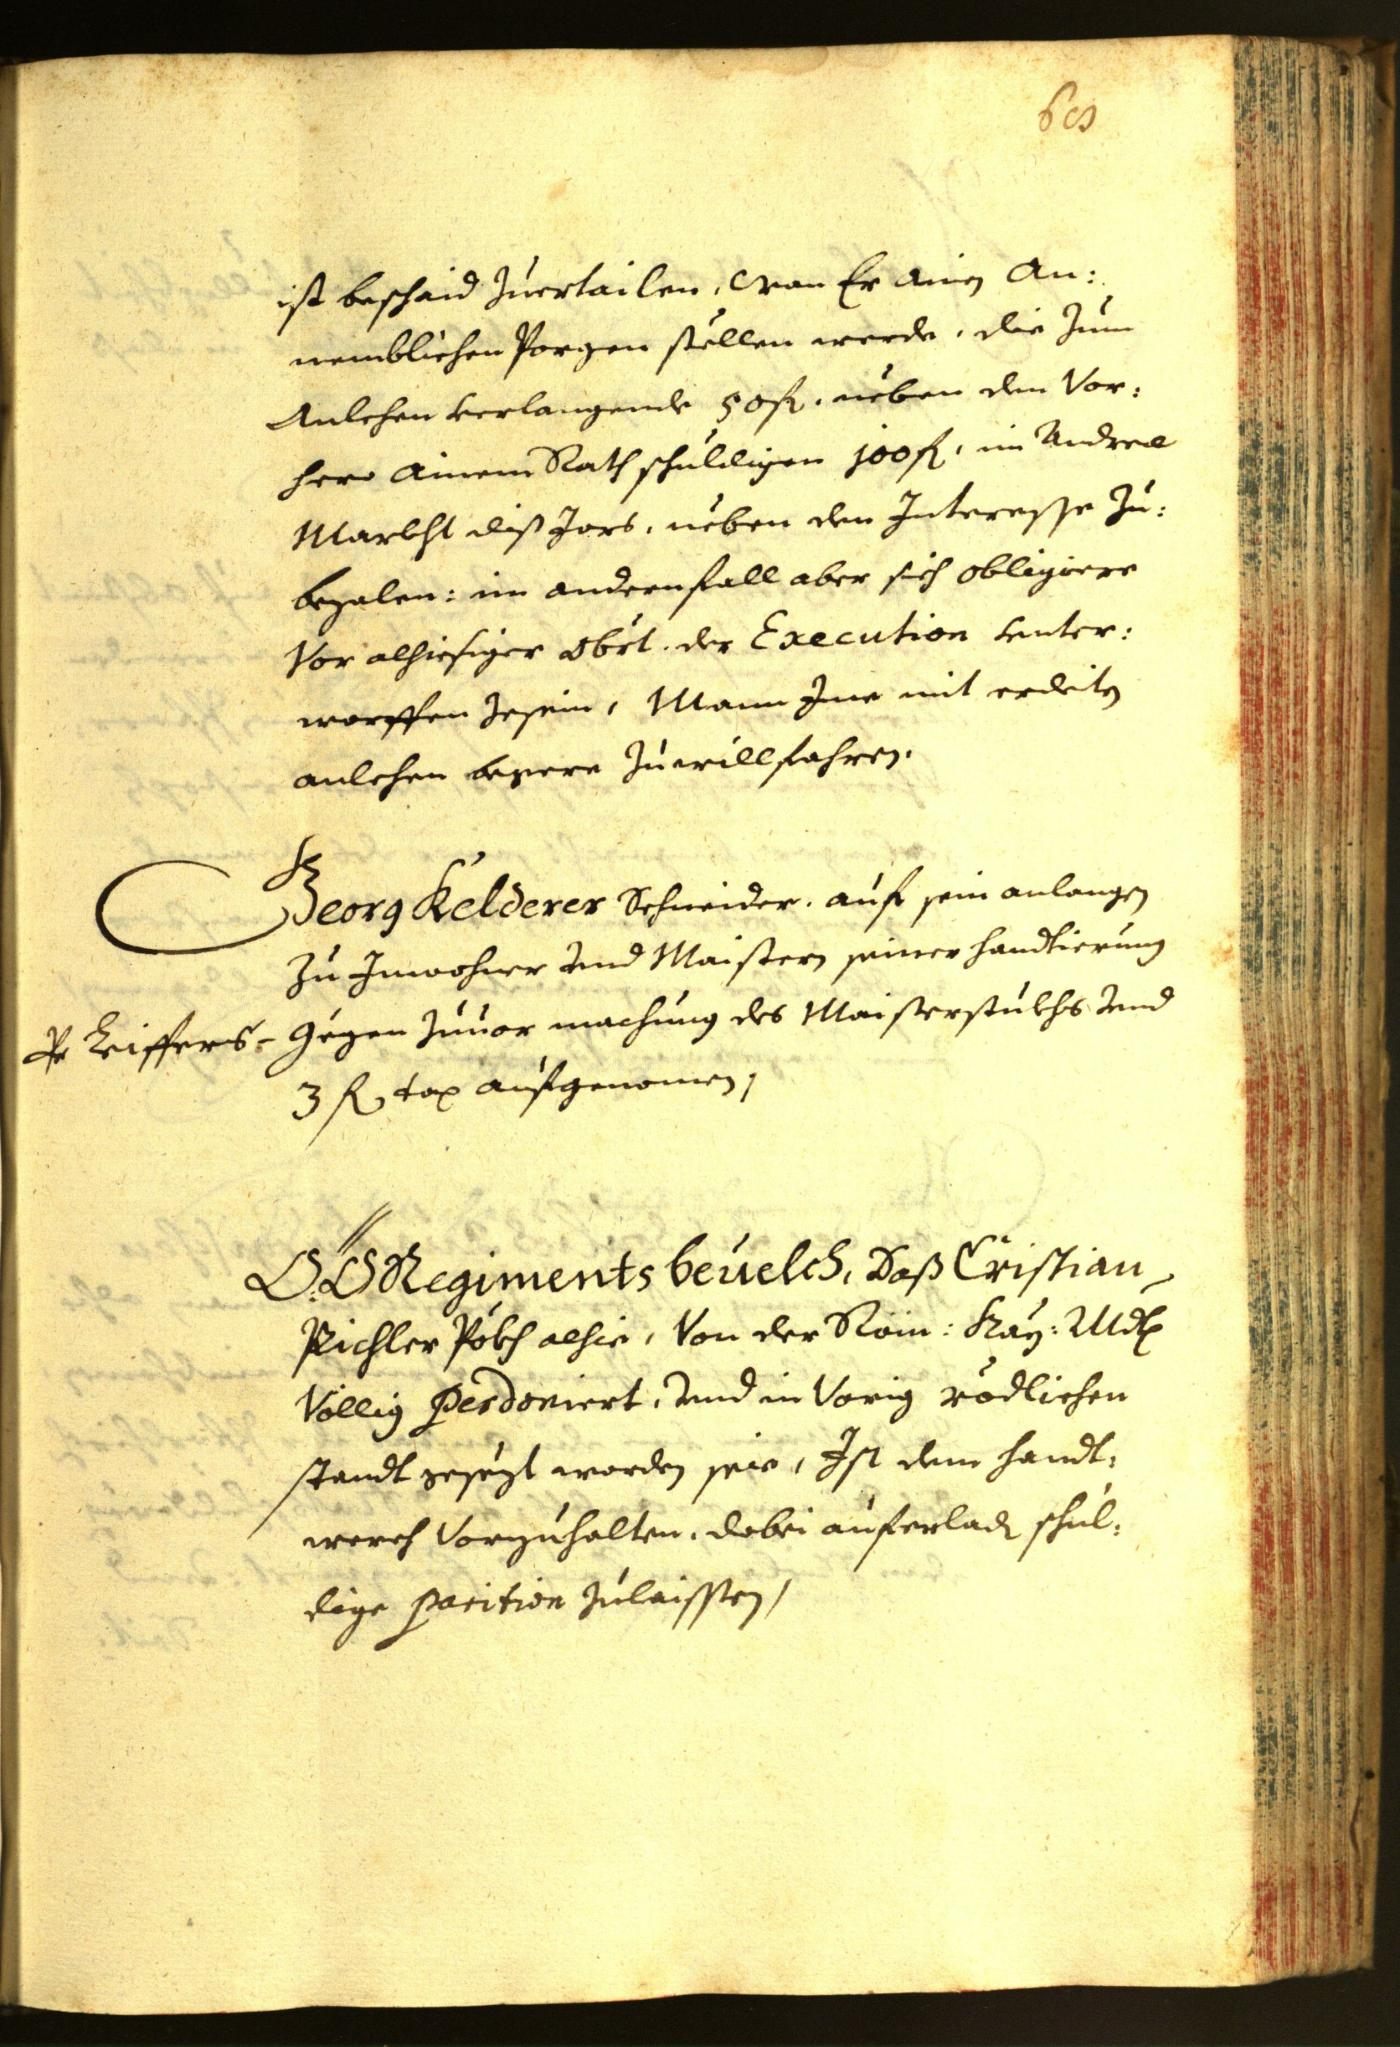 60
ist beschaid zuertailen, Wan Er ainen An:
nemblichen Porgen stellen werde, die zum
Anlehen verlangende 50 fl. neben den Vor:
hero ainem Rath schuldigen 100 fl. im Andreæ
Markht diß Jars, neben den Interesse zu:
bezalen: im andernfall aber sich obligiere
Vor alhiesiger Obrt. der Execution vnter:
worffen zesein, Mann Ime mit
anlehen zuwillfahren.
Georg Kelderer Schneider, auf sein anlangen
zu Inwohner vnd Maistern seiner handtierung
Gegen zuuor machung des Maisterstukhs vnd
3 fl tax aufgenomen,
O: O Regiments beuelch, Daß Cristian
Pichler Pökh alhie, Von der Röm: Kay: Mdt
Völlig perdoniert, vnd in Vorig rödlichen
standt gesezt worden seie, Ist dem handt:
werch Vorzuhalten, dabei auferladt schul:
dige parition zulaisten,